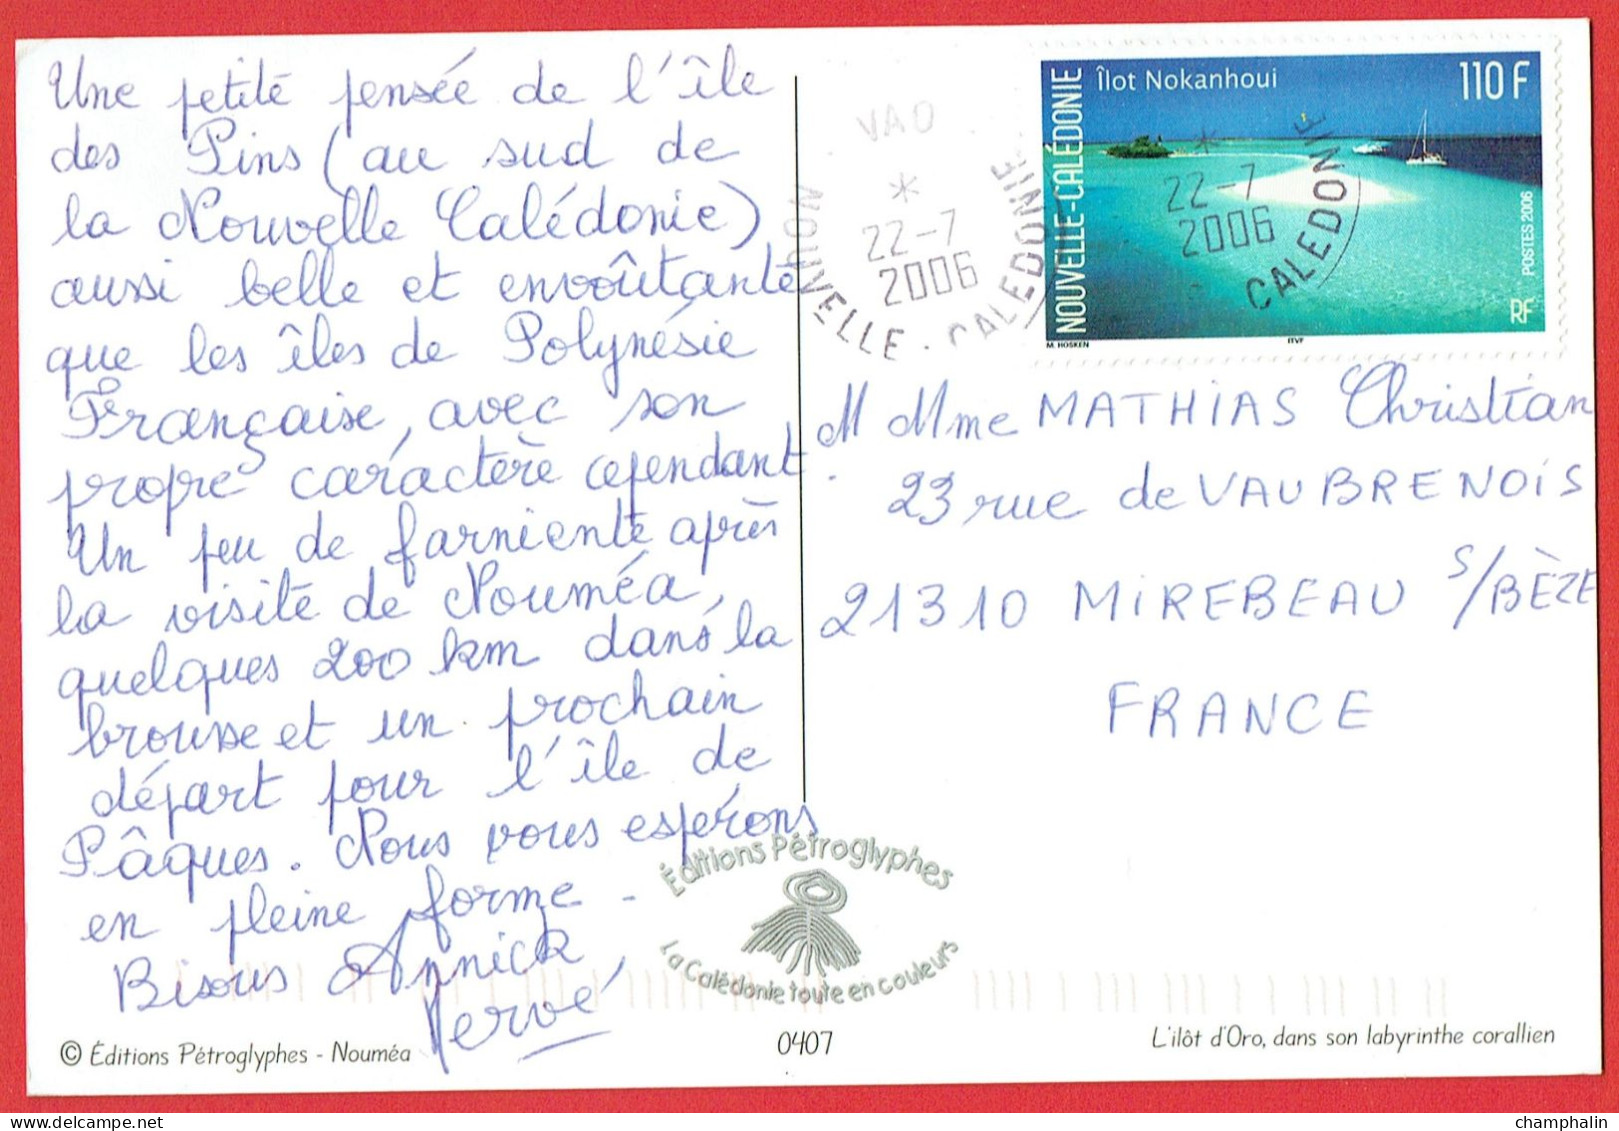 Une petite pensée de l'île
des Pins (au sud de
la Nouvelle Calédonie)
aussi belle et envoûtante
que les îles de Polynésie
Française, avec son
propre caractère cependant.
Un peu de farniente après
la visite de Nouméa,
quelques 200 km dans la
brousse et un prochain
départ pour l'île de
Pâques. Nous vous espérons
en pleine forme -
Bisous Annick,
Hervé
© Éditions Pétroglyphes - Nouméa
VAO
*
22-7
2006
NOUVELLE. CALEDONIE
NOUVELLE-CALÉDONIE
Îlot Nokanhoui
110 F
*
22-7
2006
CALEDONIE
POSTES 2006
RF
M. HOSKEN
ITVF
M Mme MATHIAS Christian
23 rue de VAUBRENOIS
21310 MIREBEAU S/BÈZE
FRANCE
Éditions Pétroglyphes
La Calédonie toute en couleurs
0407
L'îlôt d'Oro, dans son labyrinthe corallien
champhalin